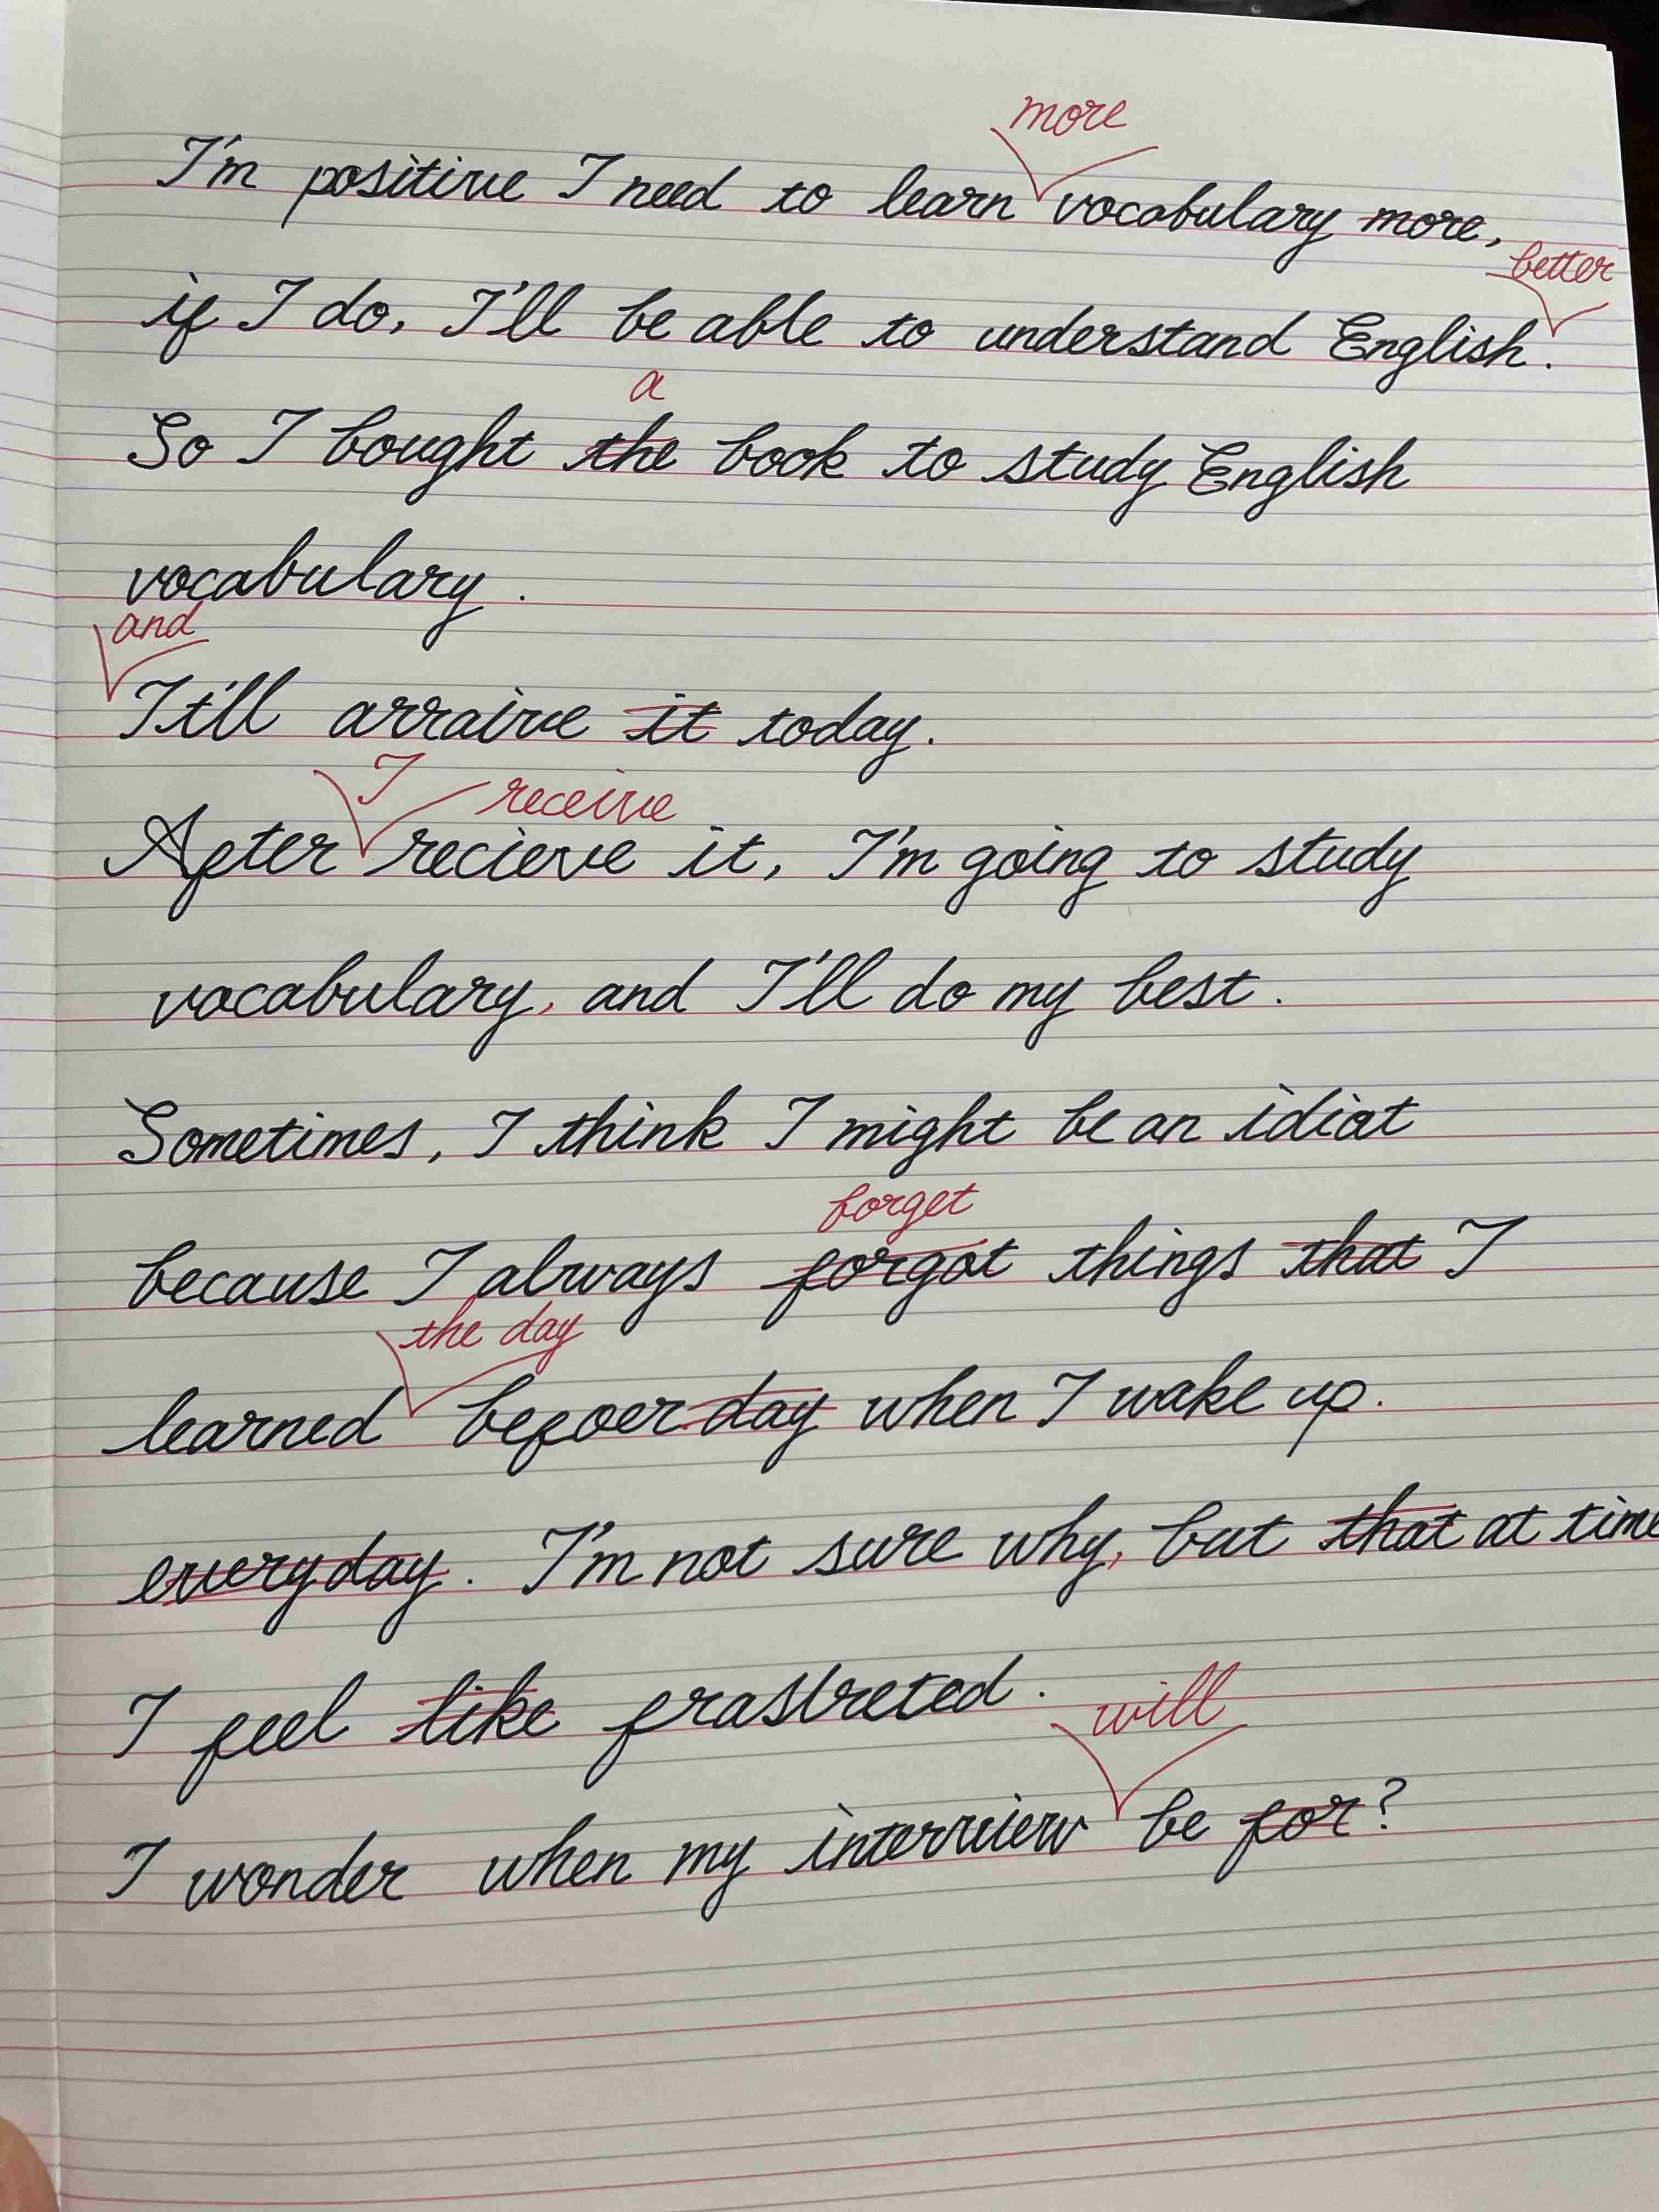 more
I'm positive I need to learn vocabulary more,
better
if I do, I'll be able to understand English.
a
So I bought the book to study English
vocabulary.
and
It'll arraive it today.
I receive
After recieve it, I'm going to study
vocabulary, and I'll do my best.
Sometimes, I think I might be an idiot
forget
because I always forgot things that I
the day
learned befoer day when I wake up.
everyday. I'm not sure why, but that at time
I feel like frastreted.
will
I wonder when my interview be for?